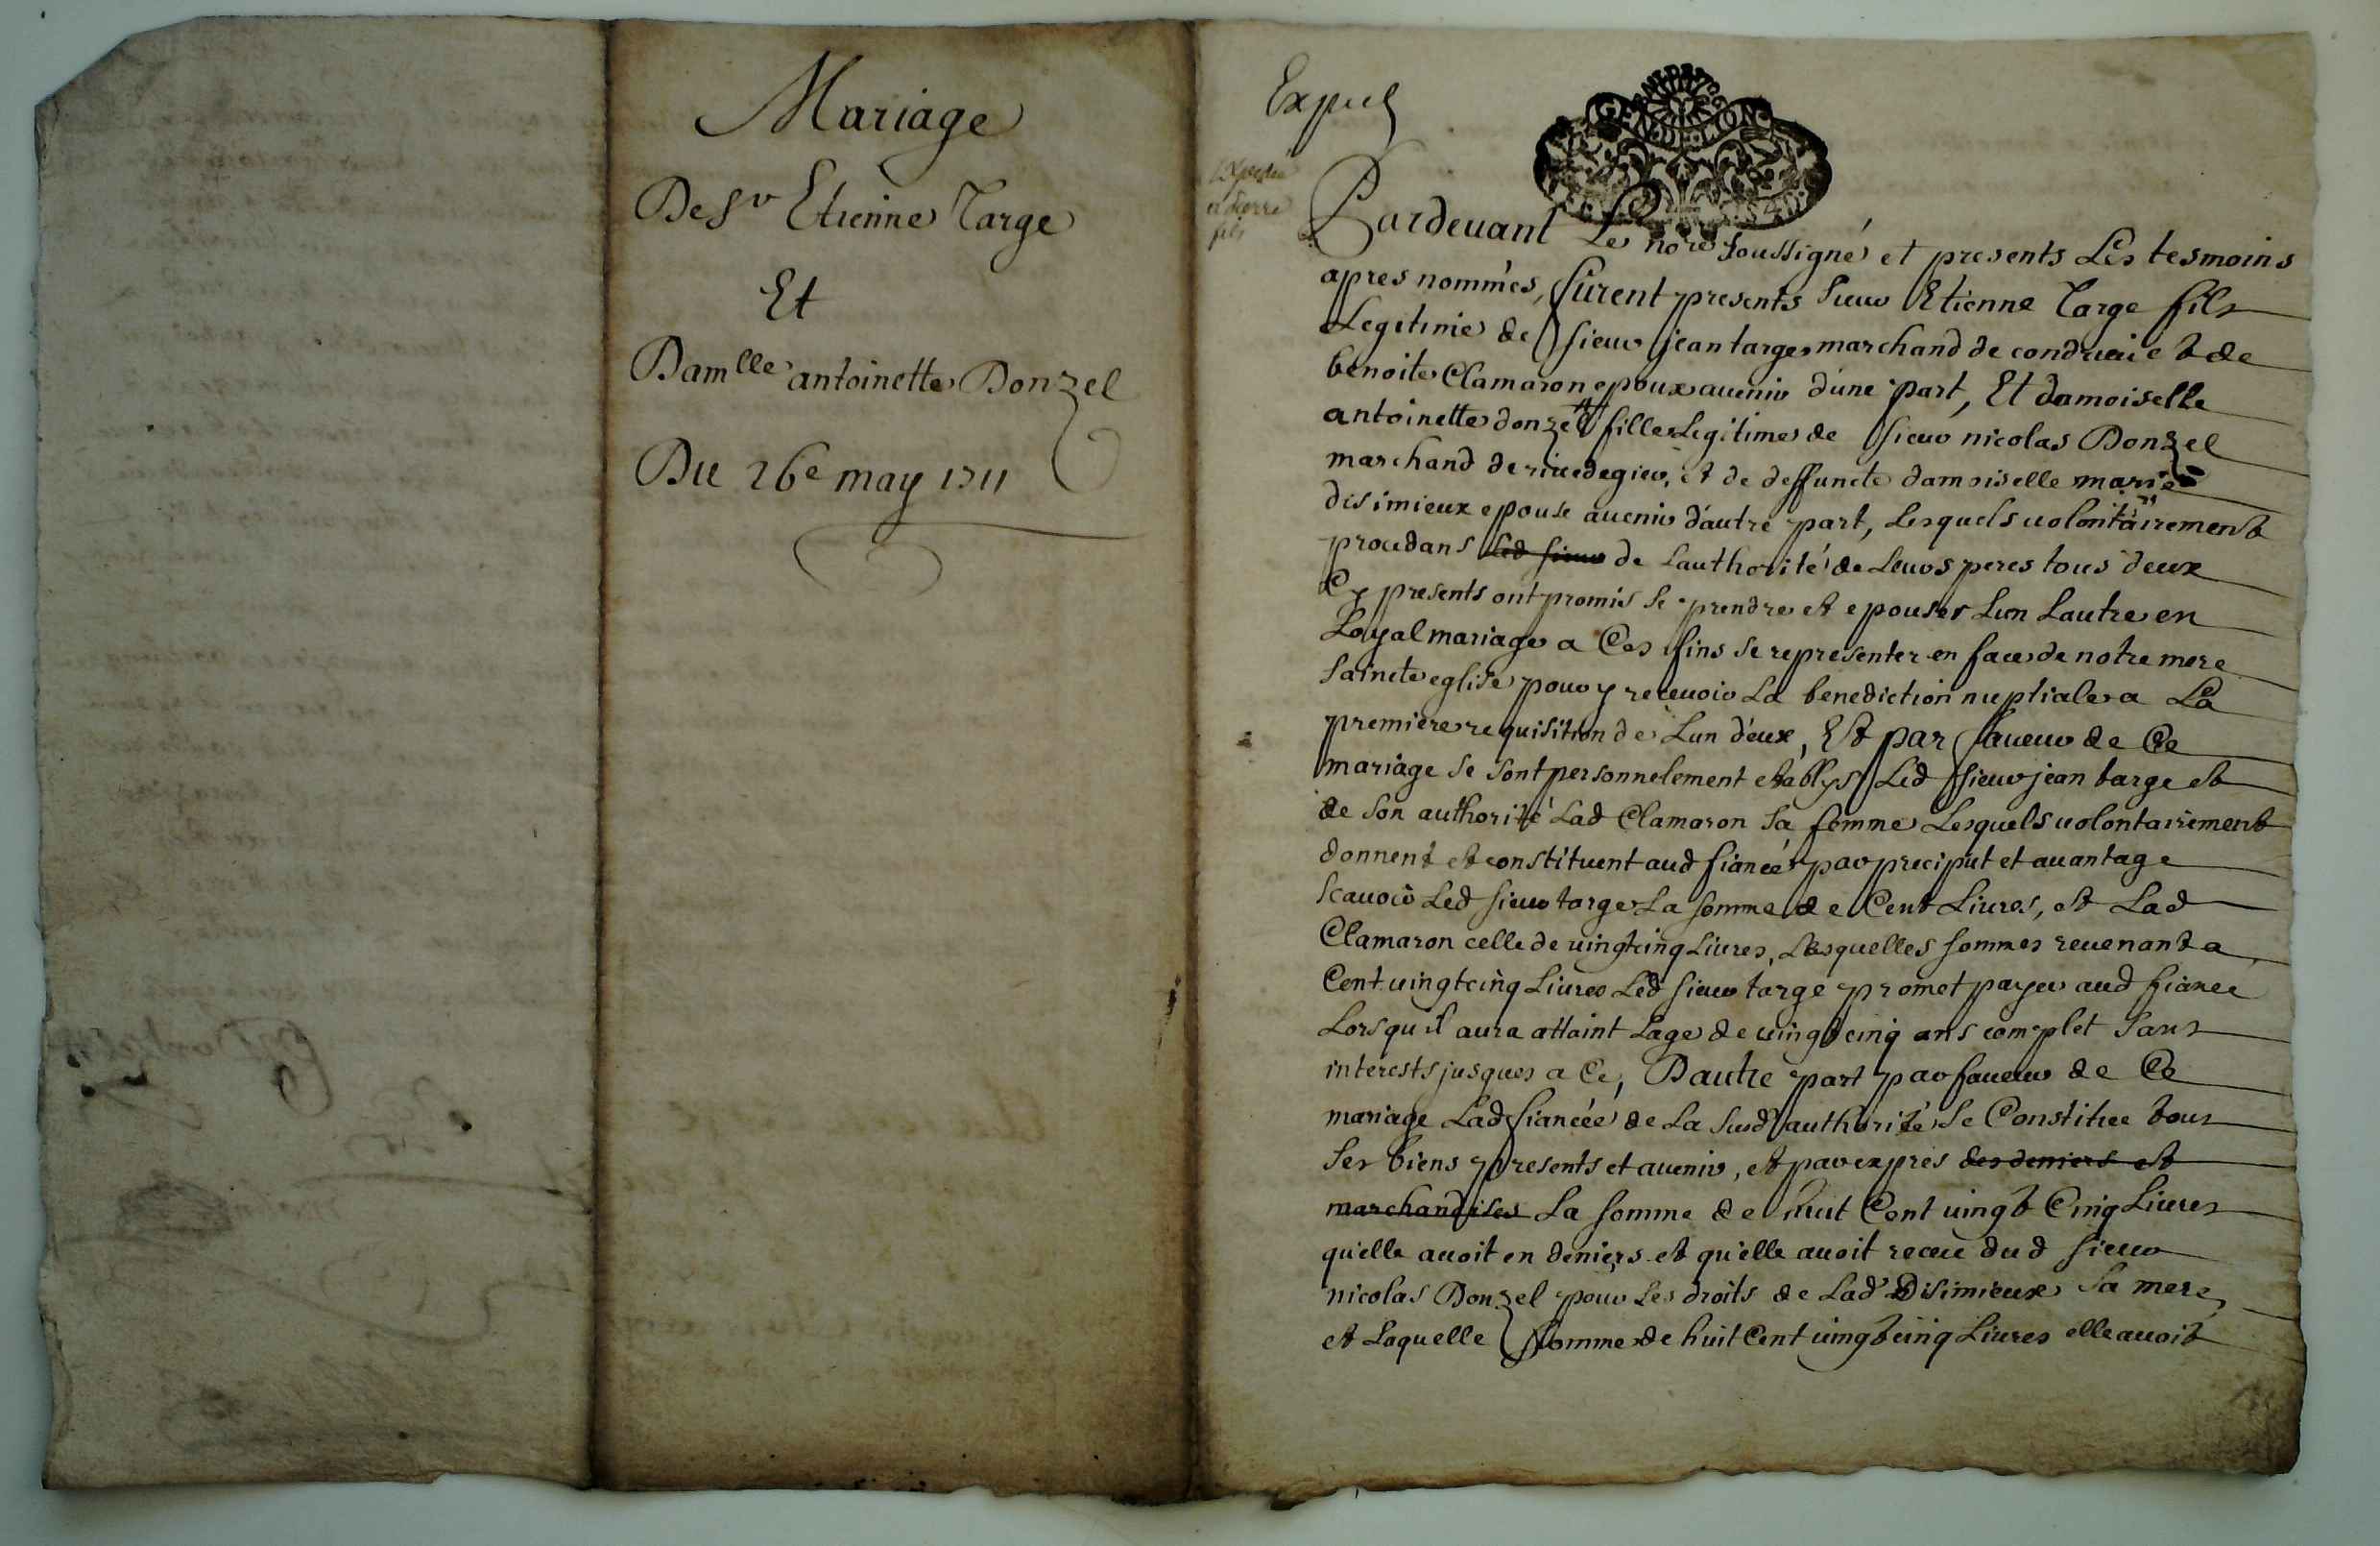 Mariage
De Sr Etienne Targe
Et
Damlle antoinette Donzel
Du 26e may 1711
Expué
GEN DE LION
Pardevant Le nore soussigné et presents Les tesmoins
apres nommés, furent presents sieur Etienne Targe fils
Legitime de sieur jean targe marchand de condrieu et de
benoite Clamaron epoux avenir d'une part, Et damoiselle
antoinette donzel fille Legitime de sieur nicolas Donzel
marchand de rivedegier, et de deffuncte damoiselle marie
disimieux epouse avenir d'autre part, Lesquels volontairement
procedans Led sieur de Lauthorité de Leurs peres tous deux
Cy presents ont promis se prendre et epouser Lun Lautre en
Loyal mariage a Ces fins se representer en face de notre mere
Saincte eglise pour y recevoir La benediction nuptiale a La
premiere requisition de Lun d'eux, Et par faveur de Ce
mariage se sont personnelement establys Led sieur jean targe et
de son authorité Lad Clamaron sa femme Lesquels volontairement
donnent et constituent aud fiancé par preciput et avantage
scavoir Led sieur targe La somme de Cent Livres, et Lad
Clamaron celle de vingtcinq Livres, Lesquelles sommes revenant a
Cent vingtcinq Livres Led sieur targe promet payer aud fiancé
Lorsqu'il aura attaint Lage de vingtcinq ans complet sans
interests jusques a Ce, D'autre part par faveur de Ce
mariage Lad fiancéé de La susd authorité se Constitue tous
ses biens presents et avenir, et par expres des deniers et
marchandises La somme de huit Cent vingt Cinq Livres
qu'elle avoit en deniers et qu'elle avoit receu dud sieur
nicolas Donzel pour Les droits de Lad Disimieux sa mere,
et Laquelle somme de huit Cent vingtcinq Livres elle avoit